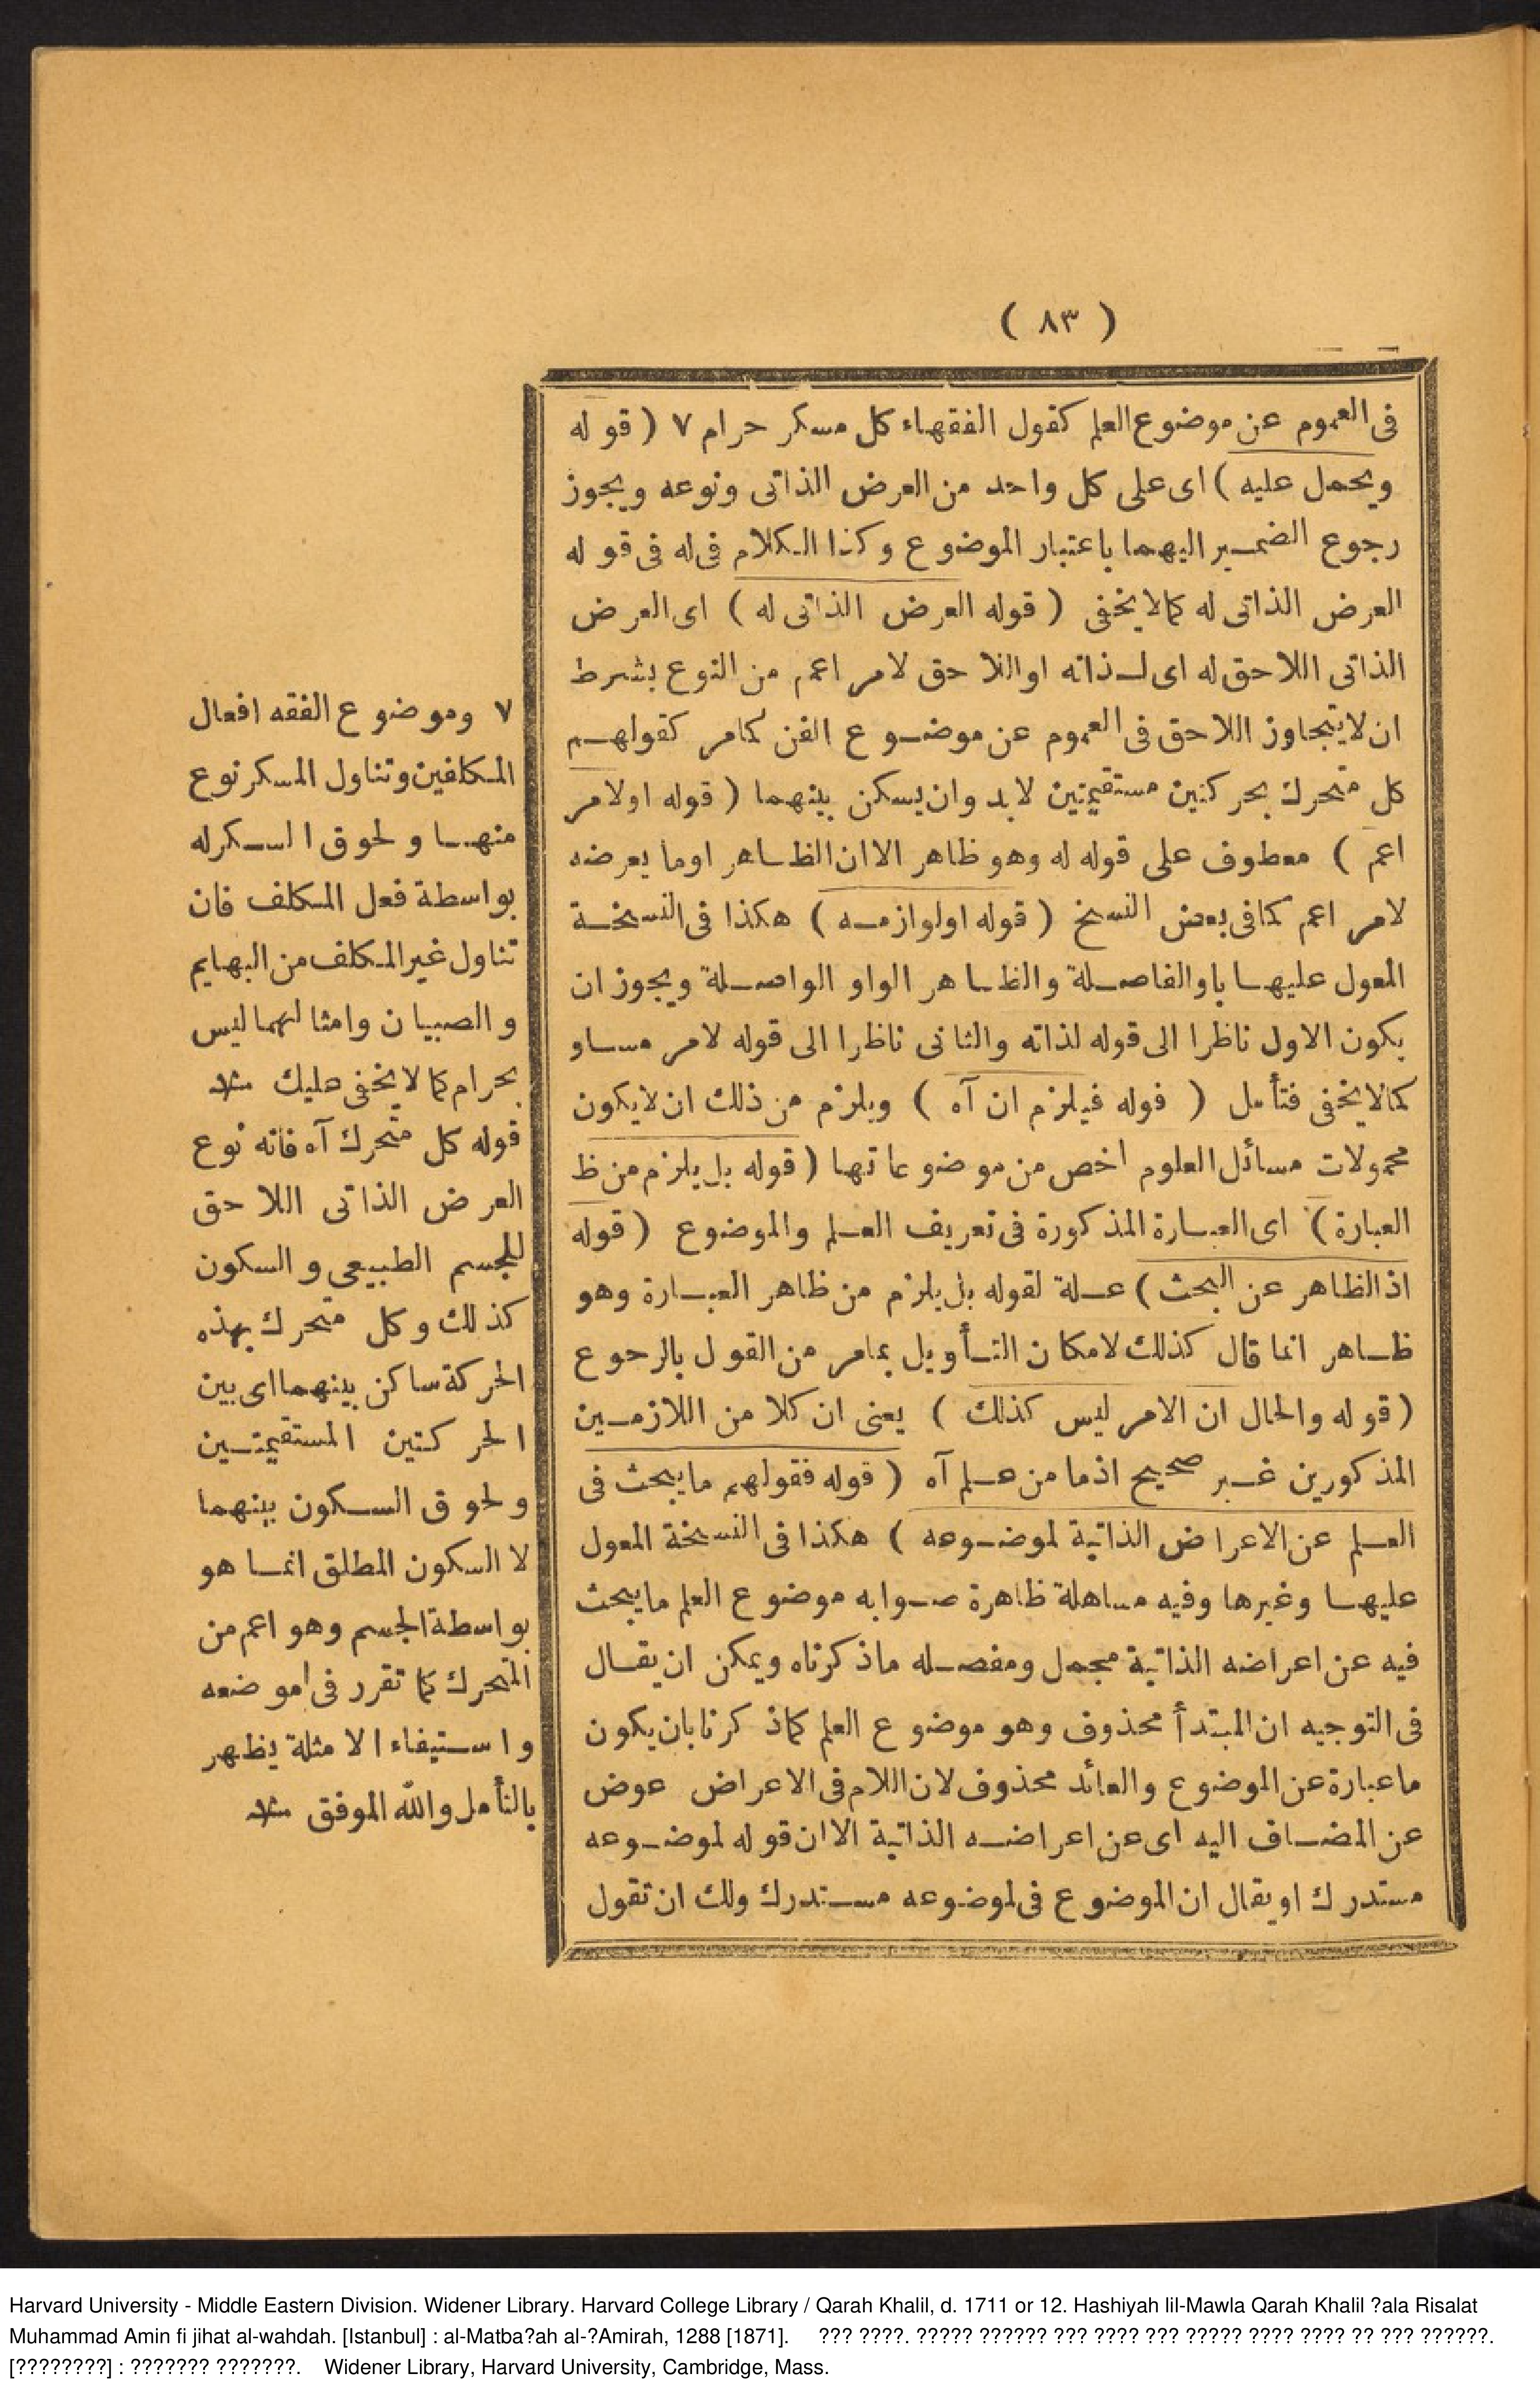 ( ٨٣ )
فى العموم عن موضوع العلم كقول الفقهاء كل مسكر حرام ٧ ( قوله
ويحمل عليه ) اى على كل واحد من العرض الذاتى ونوعه ويجوز
رجوع الضمير اليهما باعتبار الموضوع وكذا الكلام فى له فى قوله
العرض الذاتى له كما لا يخفى ( قوله العرض الذاتى له ) اى العرض
الذاتى اللاحق له اى لذاته او اللاحق لامر اعم من النوع بشرط
ان لا يتجاوز اللاحق فى العموم عن موضوع الفن كما مر كقولهم
كل متحرك بحركتين مستقيمتين لابد وان يسكن بينهما ( قوله او لامر
اعم ) معطوف على قوله له وهو ظاهر الا ان الظاهر او ما يعرضه
لامر اعم كما فى بعض النسخ ( قوله اولوازمه ) هكذا فى النسخة
المعول عليها باو الفاصلة والظاهر الواو الواصلة ويجوز ان
يكون الاول ناظرا الى قوله لذاته والثانى ناظرا الى قوله لامر مساو
كما لا يخفى فتأمل ( قوله فيلزم ان آه ) ويلزم من ذلك ان لا يكون
محمولات مسائل العلوم اخص من موضوعاتها ( قوله بل يلزم من ظ
العبارة ) اى العبارة المذكورة فى تعريف العلم والموضوع ( قوله
اذ الظاهر عن البحث ) علة لقوله بل يلزم من ظاهر العبارة وهو
ظاهر انما قال كذلك لامكان التأويل بما مر من القول بالرحوع
( قوله والحال ان الامر ليس كذلك ) يعنى ان كلا من اللازمين
المذكورين غير صحيح اذ ما من علم آه ( قوله فقولهم ما يبحث فى
العلم عن الاعراض الذاتية لموضوعه ) هكذا فى النسخة المعول
عليها وغيرها وفيه مساهلة ظاهرة صوابه موضوع العلم ما يبحث
فيه عن اعراضه الذاتية مجمل ومفصله ما ذكرناه ويمكن ان يقال
فى التوجيه ان المبتدأ محذوف وهو موضوع العلم كما ذكرنا بان يكون
ما عبارة عن الموضوع والعائد محذوف لان اللام فى الاعراض عوض
عن المضاف اليه اى عن اعراضه الذاتية الا ان قوله لموضوعه
مستدرك او يقال ان الموضوع فى لموضوعه مستدرك ولك ان تقول
٧ وموضوع الفقه افعال
المكلفين وتناول المسكر نوع
منها ولحوق السكر له
بواسطة فعل المكلف فان
تناول غير المكلف من البهايم
والصبيان وامثالهما ليس
بحرام كما لا يخفى عليك منه
قوله كل متحرك آه فانه نوع
العرض الذاتى اللاحق
للجسم الطبيعى والسكون
كذلك وكل متحرك بهذه
الحركة ساكن بينهما اى بين
الحركتين المستقيمتين
ولحوق السكون بينهما
لا السكون المطلق انما هو
بواسطة الجسم وهو اعم من
المتحرك كما تقرر فى موضعه
واستيفاء الامثلة يظهر
بالتأمل والله الموفق منه
Harvard University - Middle Eastern Division. Widener Library. Harvard College Library / Qarah Khalil, d. 1711 or 12. Hashiyah lil-Mawla Qarah Khalil ?ala Risalat
Muhammad Amin fi jihat al-wahdah. [Istanbul] : al-Matba?ah al-?Amirah, 1288 [1871]. ??? ????. ????? ?????? ??? ???? ??? ????? ???? ???? ?? ??? ??????.
[????????] : ??????? ???????. Widener Library, Harvard University, Cambridge, Mass.